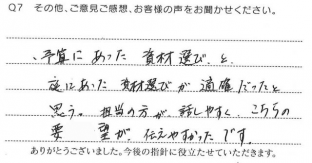 Q7 その他、ご意見ご感想、お客様の声をお聞かせください。
、予算にあった資材選び、と
庭にあった資材選びが適確だったと
思う。担当の方が話しやすく、こちらの
要望が、伝えやすかったです。
ありがとうございました。今後の指針に役立たせていただきます。